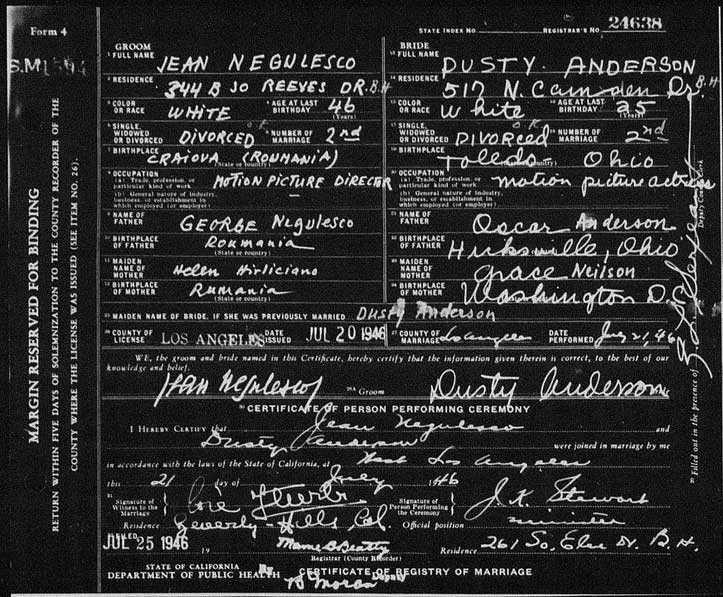 Form 4
STATE INDEX NO. REGISTRAR'S NO. 24638
GROOM
1 FULL NAME JEAN NEGULESCO
2 RESIDENCE 344 B SO REEVES DR. B.H
3 COLOR OR RACE WHITE 4 AGE AT LAST BIRTHDAY 46 (Years)
5 SINGLE, WIDOWED OR DIVORCED DIVORCED 6 NUMBER OF MARRIAGE 2nd
7 BIRTHPLACE CRAIOVA (ROUMANIA) (State or country)
8 OCCUPATION
(a) Trade, profession, or particular kind of work MOTION PICTURE DIRECTOR
(b) General nature of industry, business, or establishment in which employed (or employer)
9 NAME OF FATHER GEORGE Negulesco
10 BIRTHPLACE OF FATHER Roumania (State or country)
11 MAIDEN NAME OF MOTHER Helen
12 BIRTHPLACE OF MOTHER Rumania (State or country)
BRIDE
13 FULL NAME DUSTY ANDERSON
14 RESIDENCE 517 N. Camden Dr B.H
15 COLOR OR RACE White 16 AGE AT LAST BIRTHDAY 25 (Years)
17 SINGLE, WIDOWED OR DIVORCED DIVORCED 18 NUMBER OF MARRIAGE 2nd
19 BIRTHPLACE Toledo Ohio
20 OCCUPATION
(a) Trade, profession, or particular kind of work motion picture actress
(b) General nature of industry, business, or establishment in which employed (or employer)
21 NAME OF FATHER Oscar Anderson
22 BIRTHPLACE OF FATHER Hicksville, Ohio
23 MAIDEN NAME OF MOTHER Grace Neilson
24 BIRTHPLACE OF MOTHER Washington D.
25 MAIDEN NAME OF BRIDE, IF SHE WAS PREVIOUSLY MARRIED Dusty Anderson
26 COUNTY OF LICENSE LOS ANGELES DATE ISSUED JUL 20 1946 27 COUNTY OF MARRIAGE Los Angeles DATE PERFORMED July 21, 46
WE, the groom and bride named in this Certificate, hereby certify that the information given therein is correct, to the best of our
knowledge and belief.
Jean Negulesco Groom Dusty Anderson
CERTIFICATE OF PERSON PERFORMING CEREMONY
I HEREBY CERTIFY that Jean Negulesco and
Dusty Anderson were joined in marriage by me
in accordance with the laws of the State of California, at West Los Angeles
this 21 day of July 1946
Signature of Witness to the Marriage Signature of Person Performing the Ceremony J. K. Stewart
Residence Beverly-Hills Cal. Official position minister
FILED JUL 25 1946 19 Mame B Beatty Residence 261 So. Elm Dr. B. H.
Registrar (County Recorder)
STATE OF CALIFORNIA
DEPARTMENT OF PUBLIC HEALTH By Deputy CERTIFICATE OF REGISTRY OF MARRIAGE
MARGIN RESERVED FOR BINDING
RETURN WITHIN FIVE DAYS OF SOLEMNIZATION TO THE COUNTY RECORDER OF THE
COUNTY WHERE THE LICENSE WAS ISSUED (SEE ITEM NO. 26).
Filled out in the presence of
Deputy County Clerk